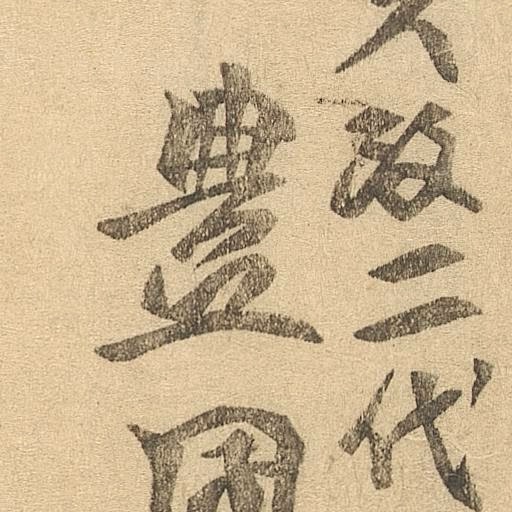 改二代
豊国